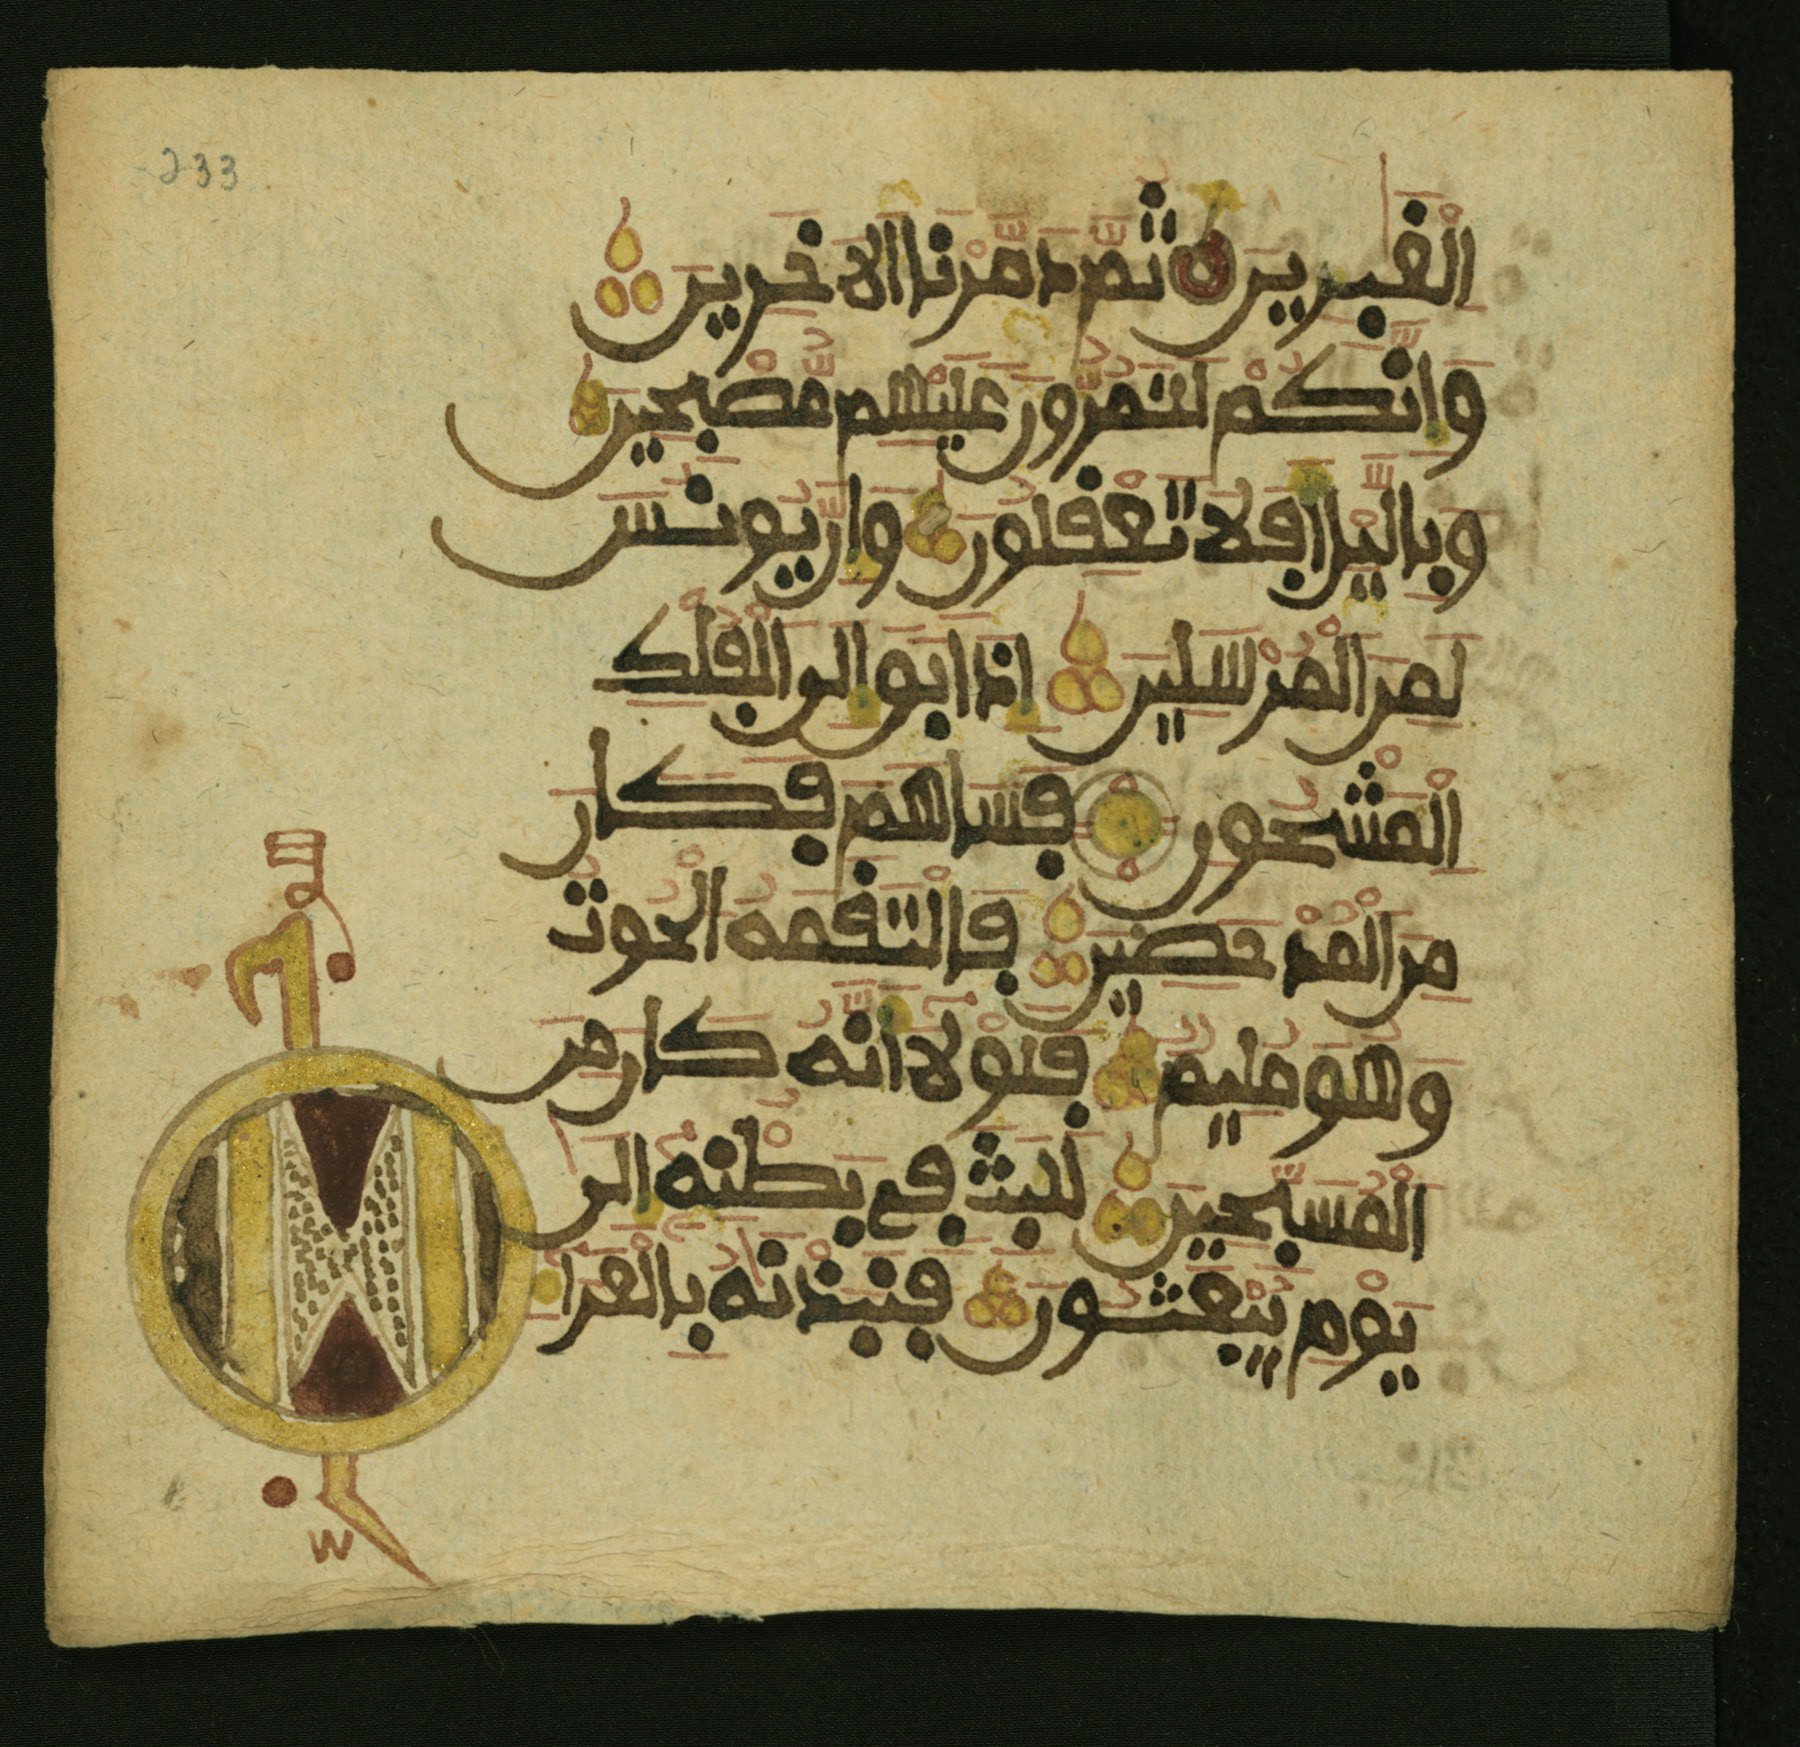 233
الْغَٰبِرِينَ ثُمَّ دَمَّرْنَا الَاخَرِينَ
وَإِنَّكُمْ لَتَمُرُّونَ عَلَيْهِم مُّصْبِحِينَ
وَبِاليْلِ أَفَلَا تَعْقِلُونَ وَإِنَّ يُونُسَ
لَمِنَ الْمُرْسَلِينَ إِذَ ابَقَ إِلَى الْفُلْكِ
الْمَشْحُونِ فَسَاهَمَ فَكَانَ
مِنَ الْمُدْحَضِينَ فَالْتَقَمَهُ الْحُوتُ
وَهُوَ مُلِيمٌ فَلَوْلَا أَنَّهُ كَانَ مِنَ
الْمُسَبِّحِينَ لَلَبِثَ فِي بَطْنِهِ إِلَى
يَوْمِ يُبْعَثُونَ فَنَبَذْنَٰهُ بِالْعَرَا